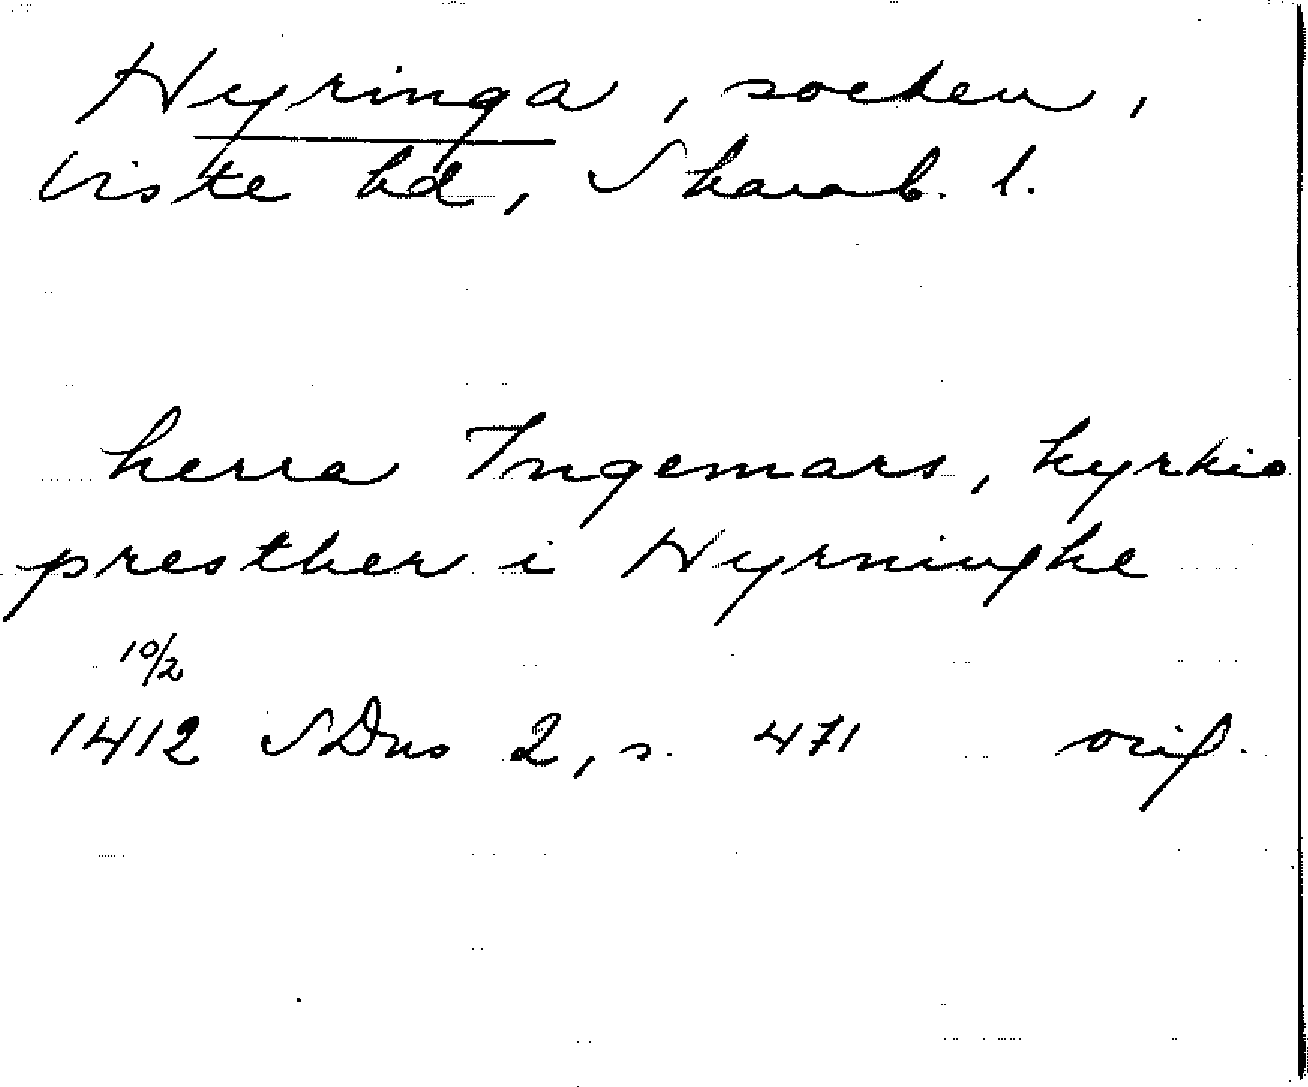 Hyringa, socken,
Viste hd, Skarab. l.
herra Ingemars, kyrkio
presther i Hyrninghe
10/2
1412 SDns 2, s. 471 orig.